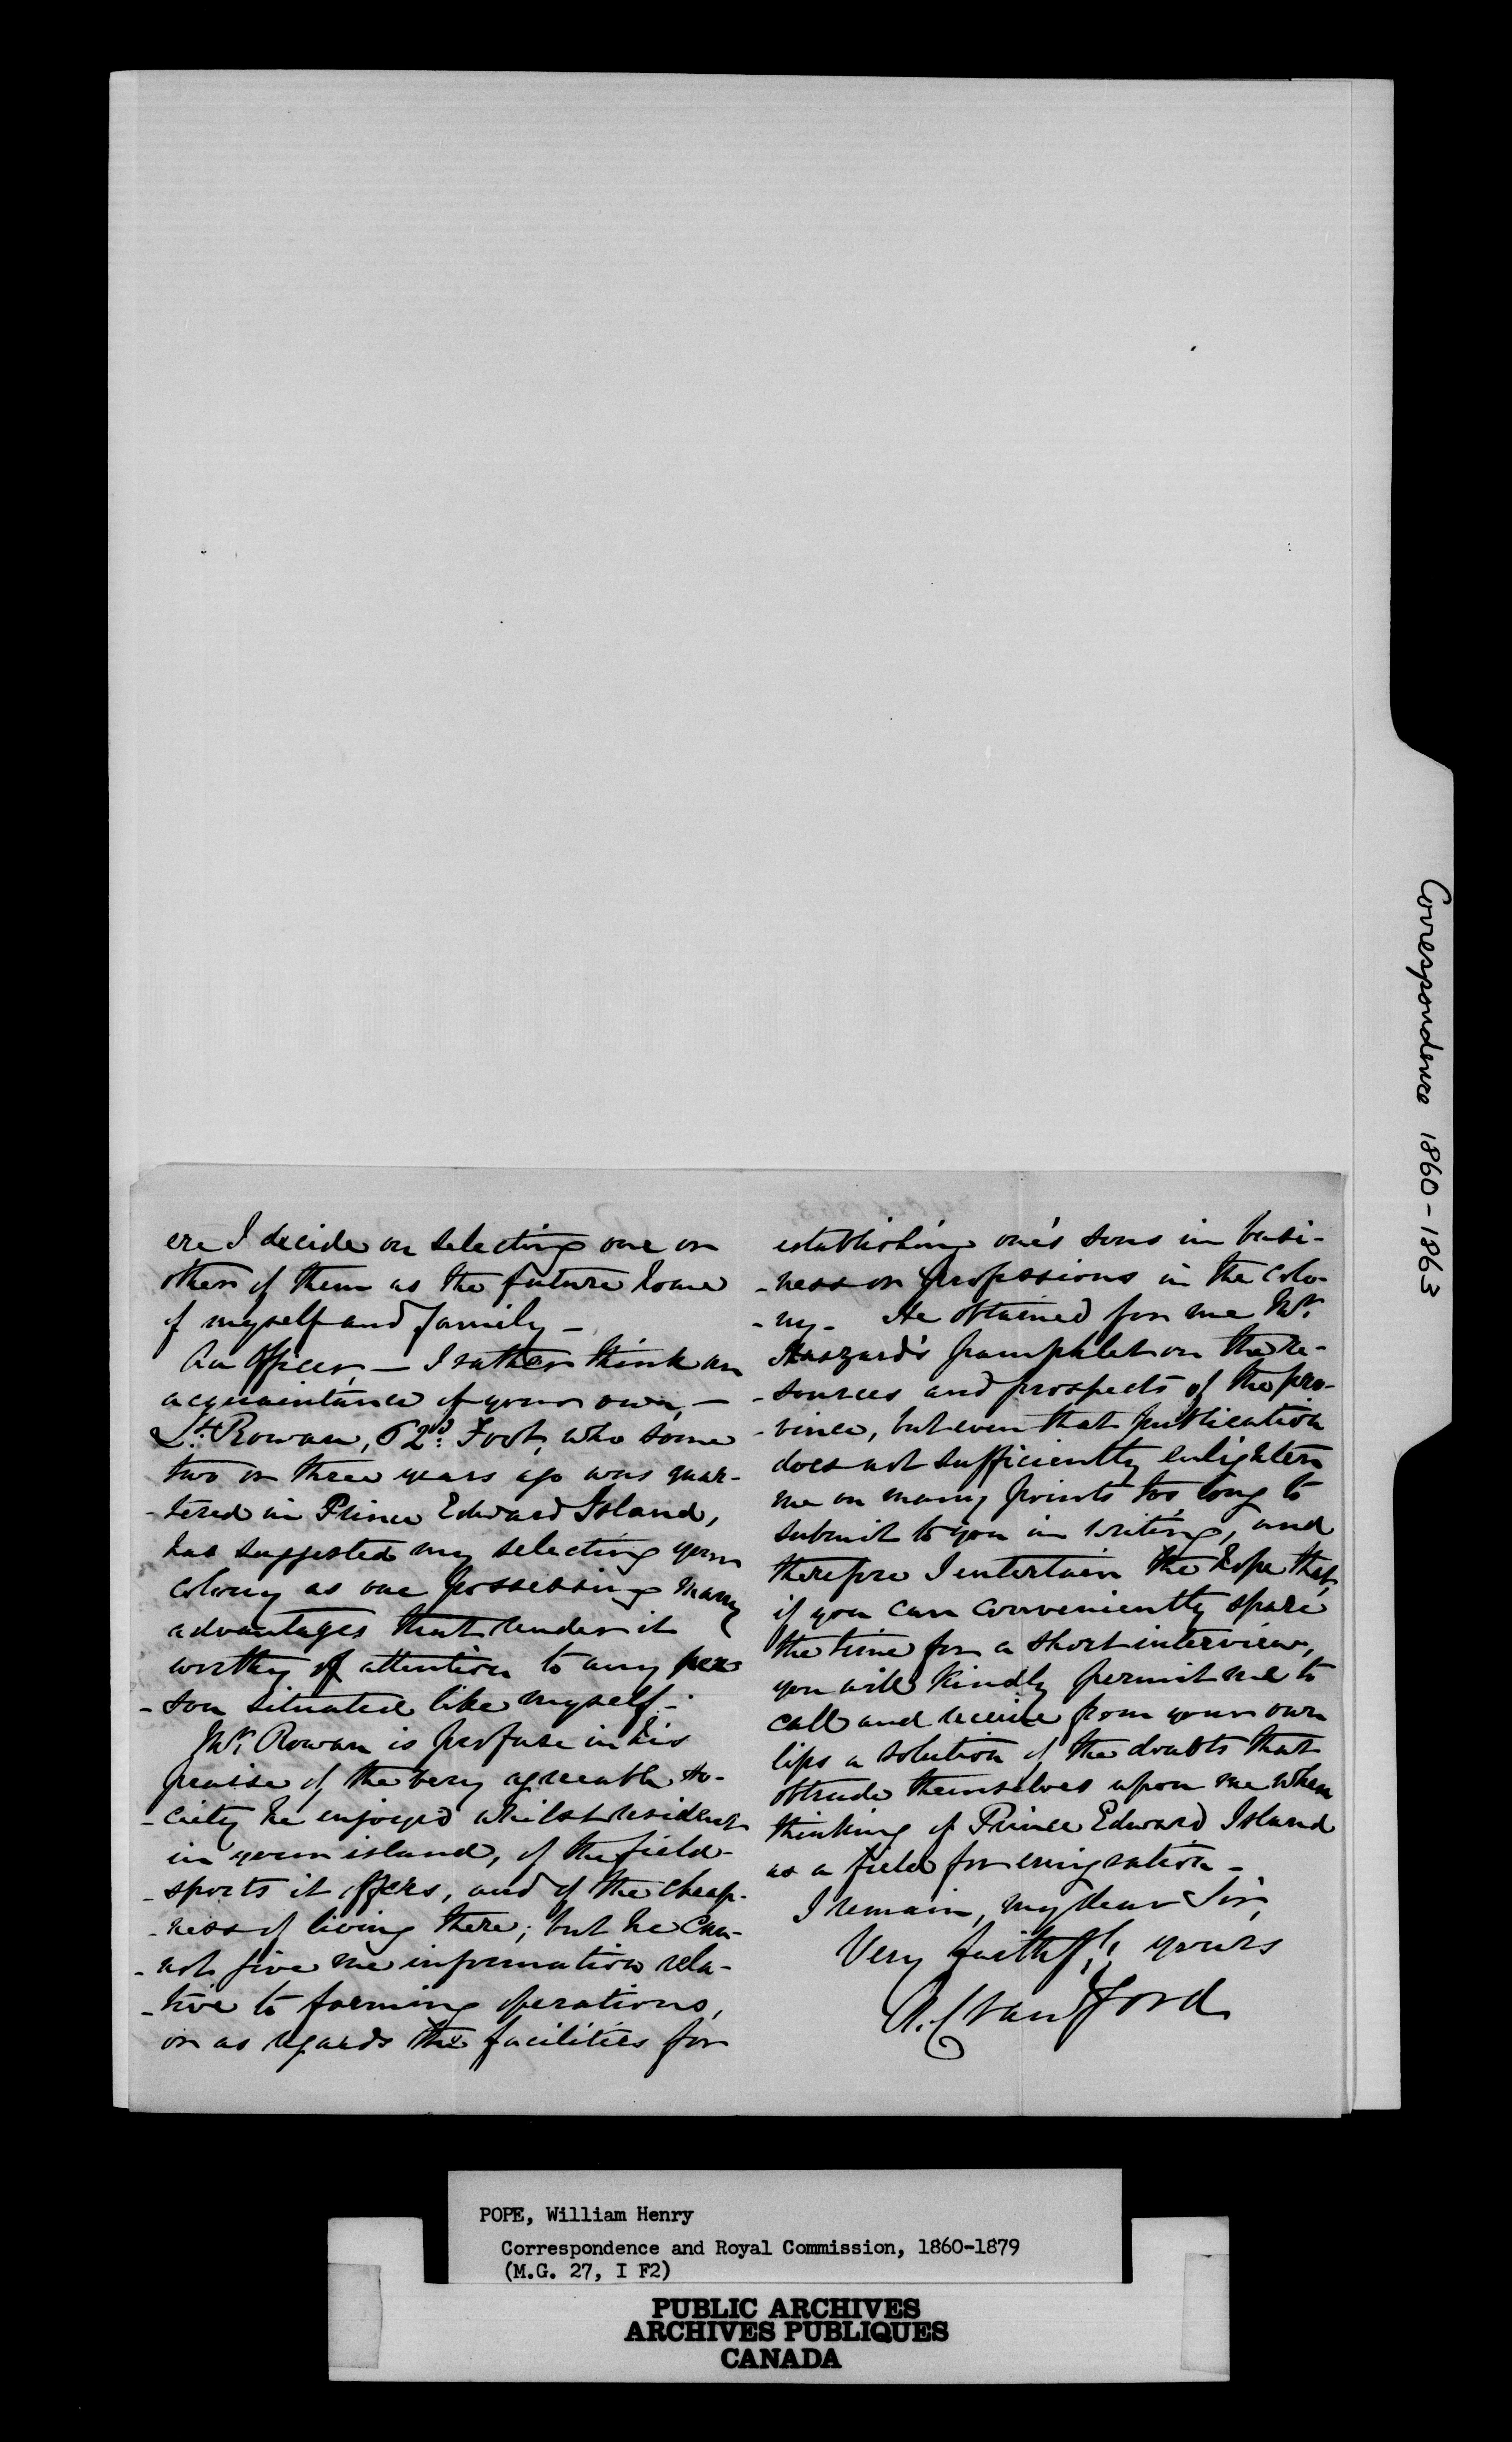 ere I decide on selecting one or
other of them as the future home
of myself and family —
An Officer, — I rather think an
acquaintance of your own, —
Lt. Rowan, 62d: Foot, who some
two or three years ago was quar-
-tered in Prince Edward Island,
has suggested my selecting your
colony as one possessing many
advantages that render it
worthy of attention to any per
-son situated like myself.-
Mr. Rowan is profuse in his
praise of the very agreeable so-
-ciety he enjoyed whilst resident
in your island, of the field-
-sports it offers, and of the cheap-
-ness of living there; but he can-
-not give me information rela-
-tive to farming operations,
or as regards the facilities for
establishing one's sons in busi-
-ness or professions in the colo-
-ny- He obtained for me Mr.
Haszard's pamphlet on the re-
-sources and prospects of the pro-
-vince, but even that publication
does not sufficiently enlighten
me on many points too long to
submit to you in writing, and
therefore I entertain the hope that,
if you can conveniently spare
the time for a short interview,
you will kindly permit me to
call and receive from your own
lips a solution of the doubts that
obtrude themselves upon me when
thinking of Prince Edward Island
as a field for emigration-
I remain, my dear Sir,
Very faithfly yours
Correspondence 1860-1863
POPE, William Henry
Correspondence and Royal Commission, 1860-1879
(M.G. 27, I F2)
PUBLIC ARCHIVES
ARCHIVES PUBLIQUES
CANADA